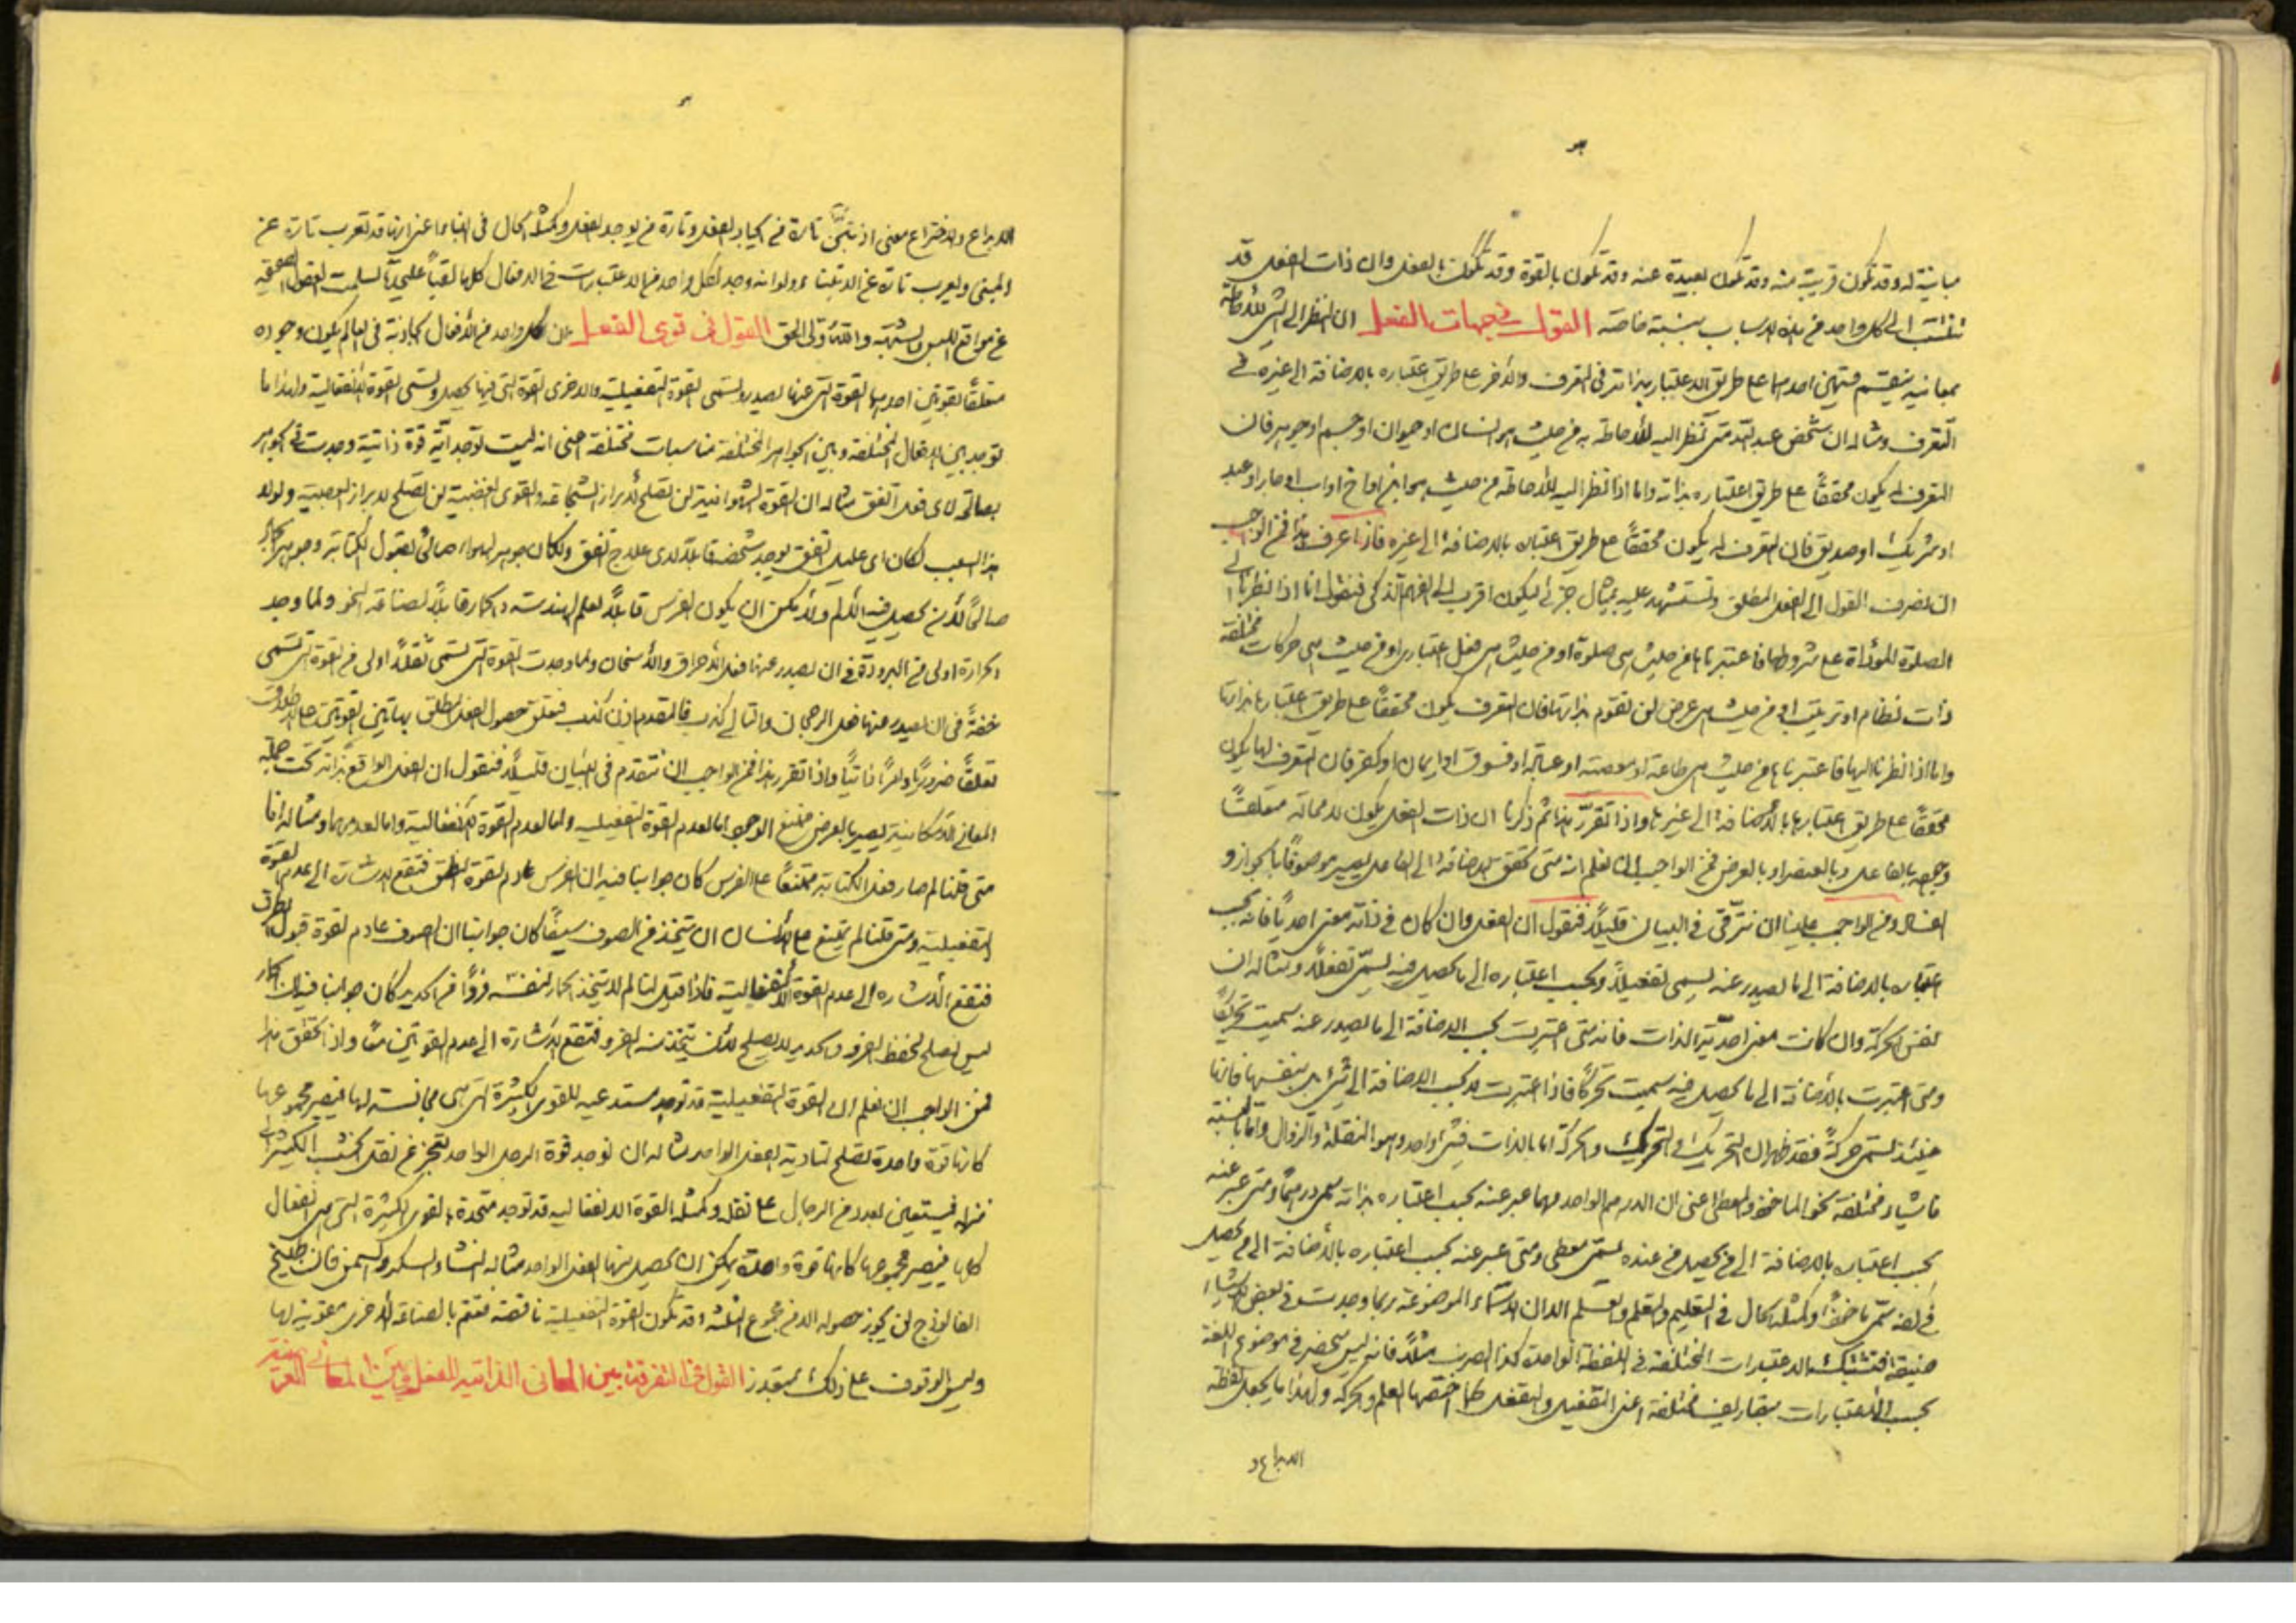 مباينة له وقد تكون قريبة منه وقد تكون بعيدة عنه وقد تكون بالقوة وقد تكون بالفعل وان ذات الفعل قد
تنتسب الى كل واحد من هذه الاسباب بنسبة خاصة القول في جهات الفعل ان النظر الى الشئ للاحاطة
بمعانيه ينقسم قسمين احدهما على طريق الاعتبار بذاته في التعرف والاخر على طريق اعتباره بالاضافة الى غيره في
التعرف ومثاله ان شخص عبد الله متى نظر اليه للاحاطة به من حيث هو انسان او حيوان او جسم او جوهر فان
التعرف له يكون محققاً على طريق اعتباره بذاته واما اذا نظر اليه للاحاطة من حيث هو ابن او اخ او اب او جار او عبد
او شريك او صديق فان التعرف له يكون محققاً على طريق اعتباره بالاضافة الى غيره فاذا عرف هذا فمن الواجب
ان نصرف القول الى الفعل المطلق ونستشهد عليه بمثال جزئي ليكون اقرب الى الفهم الذكي فنقول انا اذا نظرنا الى
الصلوة المؤداة على شروطها فاعتبرناها من حيث هي صلوة او من حيث هي فعل اختياري او من حيث هي حركات مختلفة
ذات نظام او ترتيب او من حيث هي عرض لن تقوم بذاتها فان التعرف يكون محققاً على طريق اعتبارها بذاتها
واما اذا نظرنا اليها فاعتبرناها من حيث هي طاعة او معصية او عبادة او فسوق او ايمان او كفر فان التعرف لها يكون
محققاً على طريق اعتبارها بالاضافة الى غيرها واذا تقرر هذا ثم ذكرنا ان ذات الفعل يكون لا محالة متعلقاً
بالفاعل وبالعنصر او بالعرض فمن الواجب ان نعلم انه متى تحقق الاضافة الى الفاعل يصير موصوفاً بالجواز و
ومن الواجب علينا ان نترقى في البيان قليلاً فنقول ان الفعل وان كان في ذاته معنى احدياً فانه بحسب
اعتباره بالاضافة الى ما يصدر عنه يسمى تفعيلاً وبحسب اعتباره الى ما يحصل فيه يسمى تفعلاً ومثاله ان
نفس الحركة وان كانت معنى احدية الذات فانه متى اعتبرت بحسب الاضافة الى ما يصدر عنه سميت تحريكاً
ومتى اعتبرت بالاضافة الى ما يحصل فيه سميت تحركاً فاذا اعتبرت لا بحسب الاضافة الى شئ بل بنفسها فانها
حينئذ تسمى حركة فقد ظهر ان التحريك والتحرك والحركة اما بالذات فشئ واحد وهو النقلة والزوال واما بالنسبة
فاشياء مختلفة نحو المأخوذ والمعطى اعنى ان الدرهم الواحد مهما عبر عنه بحسب اعتباره بذاته سمى درهماً ومتى عبر عنه
بحسب اعتباره بالاضافة الى من يحصل من عنده سمى معطى ومتى عبر عنه بحسب اعتباره بالاضافة الى من يحصل
في يسمى مأخوذاً وكمثله الحال في التعليم والتعلم والعلم الا ان الاسماء الموضوعة ربما وجدت في بعض الاشياء
ضيقة فتشترك الاعتبارات المختلفة في اللفظة الواحدة كذا الضرب مثلاً فانه ليس يحضر في موضوع اللغة
بحسب الاعتبارات بتصاريف مختلفة اعنى التفعيل والتفعل كما اختص بها العلم والحركة ولهذا ما يجعل لفظة
الابداع و
الابداع والاختراع معنى اذ تارة من ايجاد الفعل وتارة من يوجد الفعل وكمثله الحال في البناء اعنى انها قد تعرب تارة عن
المبنى ويعرب تارة عن الابتناء ولو انه وجد لكل واحد من الاعتبارات في الافعال كلها لقباً على حدة لسلمت العقول
عن مواقع اللبس والشبهة والله ولى الحق القول في قوى الفعل ان كل واحد من الافعال الحادثة في العالم يكون وجوده
متعلقاً بقوتين احدهما القوة التي عنها يصدر وتسمى القوة التفعيلية والاخرى القوة التي فيها يحصل وتسمى القوة الانفعالية ولهذا ما
توجد بين الافعال المختلفة وبين الجواهر المختلفة مناسبات مختلفة اعنى انه ليست توجد اية قوة ذاتية وجدت في الجواهر
بصالحة لاى فعل اتفق مثاله ان القوة الشهوانية لن تصلح لابراز الشجاعة والقوى الغضبية لن تصلح لابراز العصبية ولولا
هذا السبب لكان اى عليل اتفق يوجد شخصه قابلاً لاى علاج اتفق ولكان جوهر الهواء صالحاً لقبول الكتابة وجوهر
صالحاً لأن يحصل فيه الالم ولا يمكن ان يكون الفرس قابلاً لعلم الهندسة والحمار قابلاً لصناعة النحو ولما وجد
الحرارة اولى من البرودة في ان يصدر عنها فعل الاحراق والاسخان ولما وجدت القوة التي تسمى ثقلاً اولى من القوة التي تسمى
خفة في ان يصدر منها فعل الرجحان والتالى كذب فالمقدم اذن كذب فتعلق حصول الفعل المطلق بهاتين القوتين على الاطلاق
تعلقاً ضرورياً وامراً ذاتياً واذا تقرر هذا فمن الواجب ان نتقدم في البيان قليلاً فنقول ان الفعل الواقع بذاته تحت جملة
المعانى الامكانية يصير بالعرض ممتنع الوجود اما لعدم القوة التفعيلية واما لعدم القوة الانفعالية واما لعدمهما ومثاله انا
متى قلنا لم صار فعل الكتابة ممتنعاً على الفرس كان جوابنا فيه ان الفرس عادم لقوة النطق فتقع الاشارة الى عدم القوة
التفعيلية ومتى قلنا لم يمتنع على الانسان ان يتخذ من الصوف سيفاً كان جوابنا ان الصوف عادم لقوة قبول الطرق
فتقع الاشارة الى عدم القوة الانفعالية فاذا قيل لنا لم لا يتخذ الحمار لنفسه فرواً من الحديد كان جوابنا فيه ان الحمار
ليس يصلح لحفظ الفرو والحديد لا يصلح لأن يتخذ منه الفرو فتقع الاشارة الى عدم القوتين معاً واذا تحقق هذا
فمن الواجب ان نعلم ان القوة التفعيلية قد توجد مستدعية للقوى الكثيرة التي هي مجانسة لها فيصير مجموعها
كانها قوة واحدة تصلح لتادية الفعل الواحد مثاله ان توجد قوة الرجل الواحد تعجز عن نقل الخشب الكثير
فيستعين بعدد من الرجال على نقله وكمثله القوة الانفعالية قد توجد متحدة بالقوى الكثيرة التي هي انفعال
كلها فيصير مجموعها كانها قوة واحدة يمكن ان يحصل منها الفعل الواحد مثاله النشا والسكر والسمن فان طبيخ
الفالوذج لن يجوز حصوله الا من مجموع الثلثة وقد تكون القوة التفعيلية ناقصة فتتم بالصناعة الاخرى مقوية لها
وليس الوقوف على ذلك بمتعذر القول في التفرقة بين المعانى الذاتية للفعل وبين المعانى